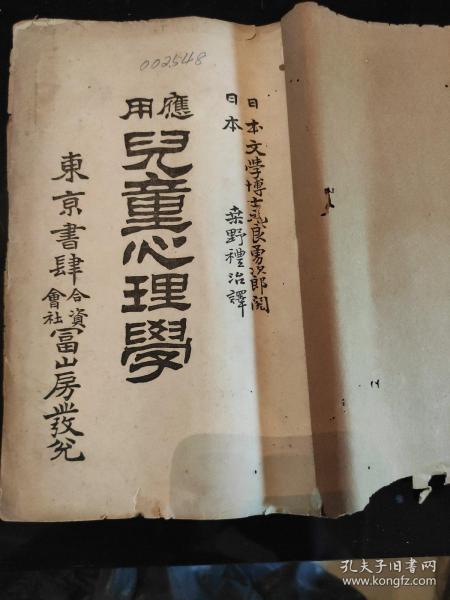 002548
日本文學博士元良勇次郎閲
日本　桑野禮治譯
應用
兒童心理學
東京書肆
合資會社
冨山房發兌
孔夫子旧书网
www.kongfz.com